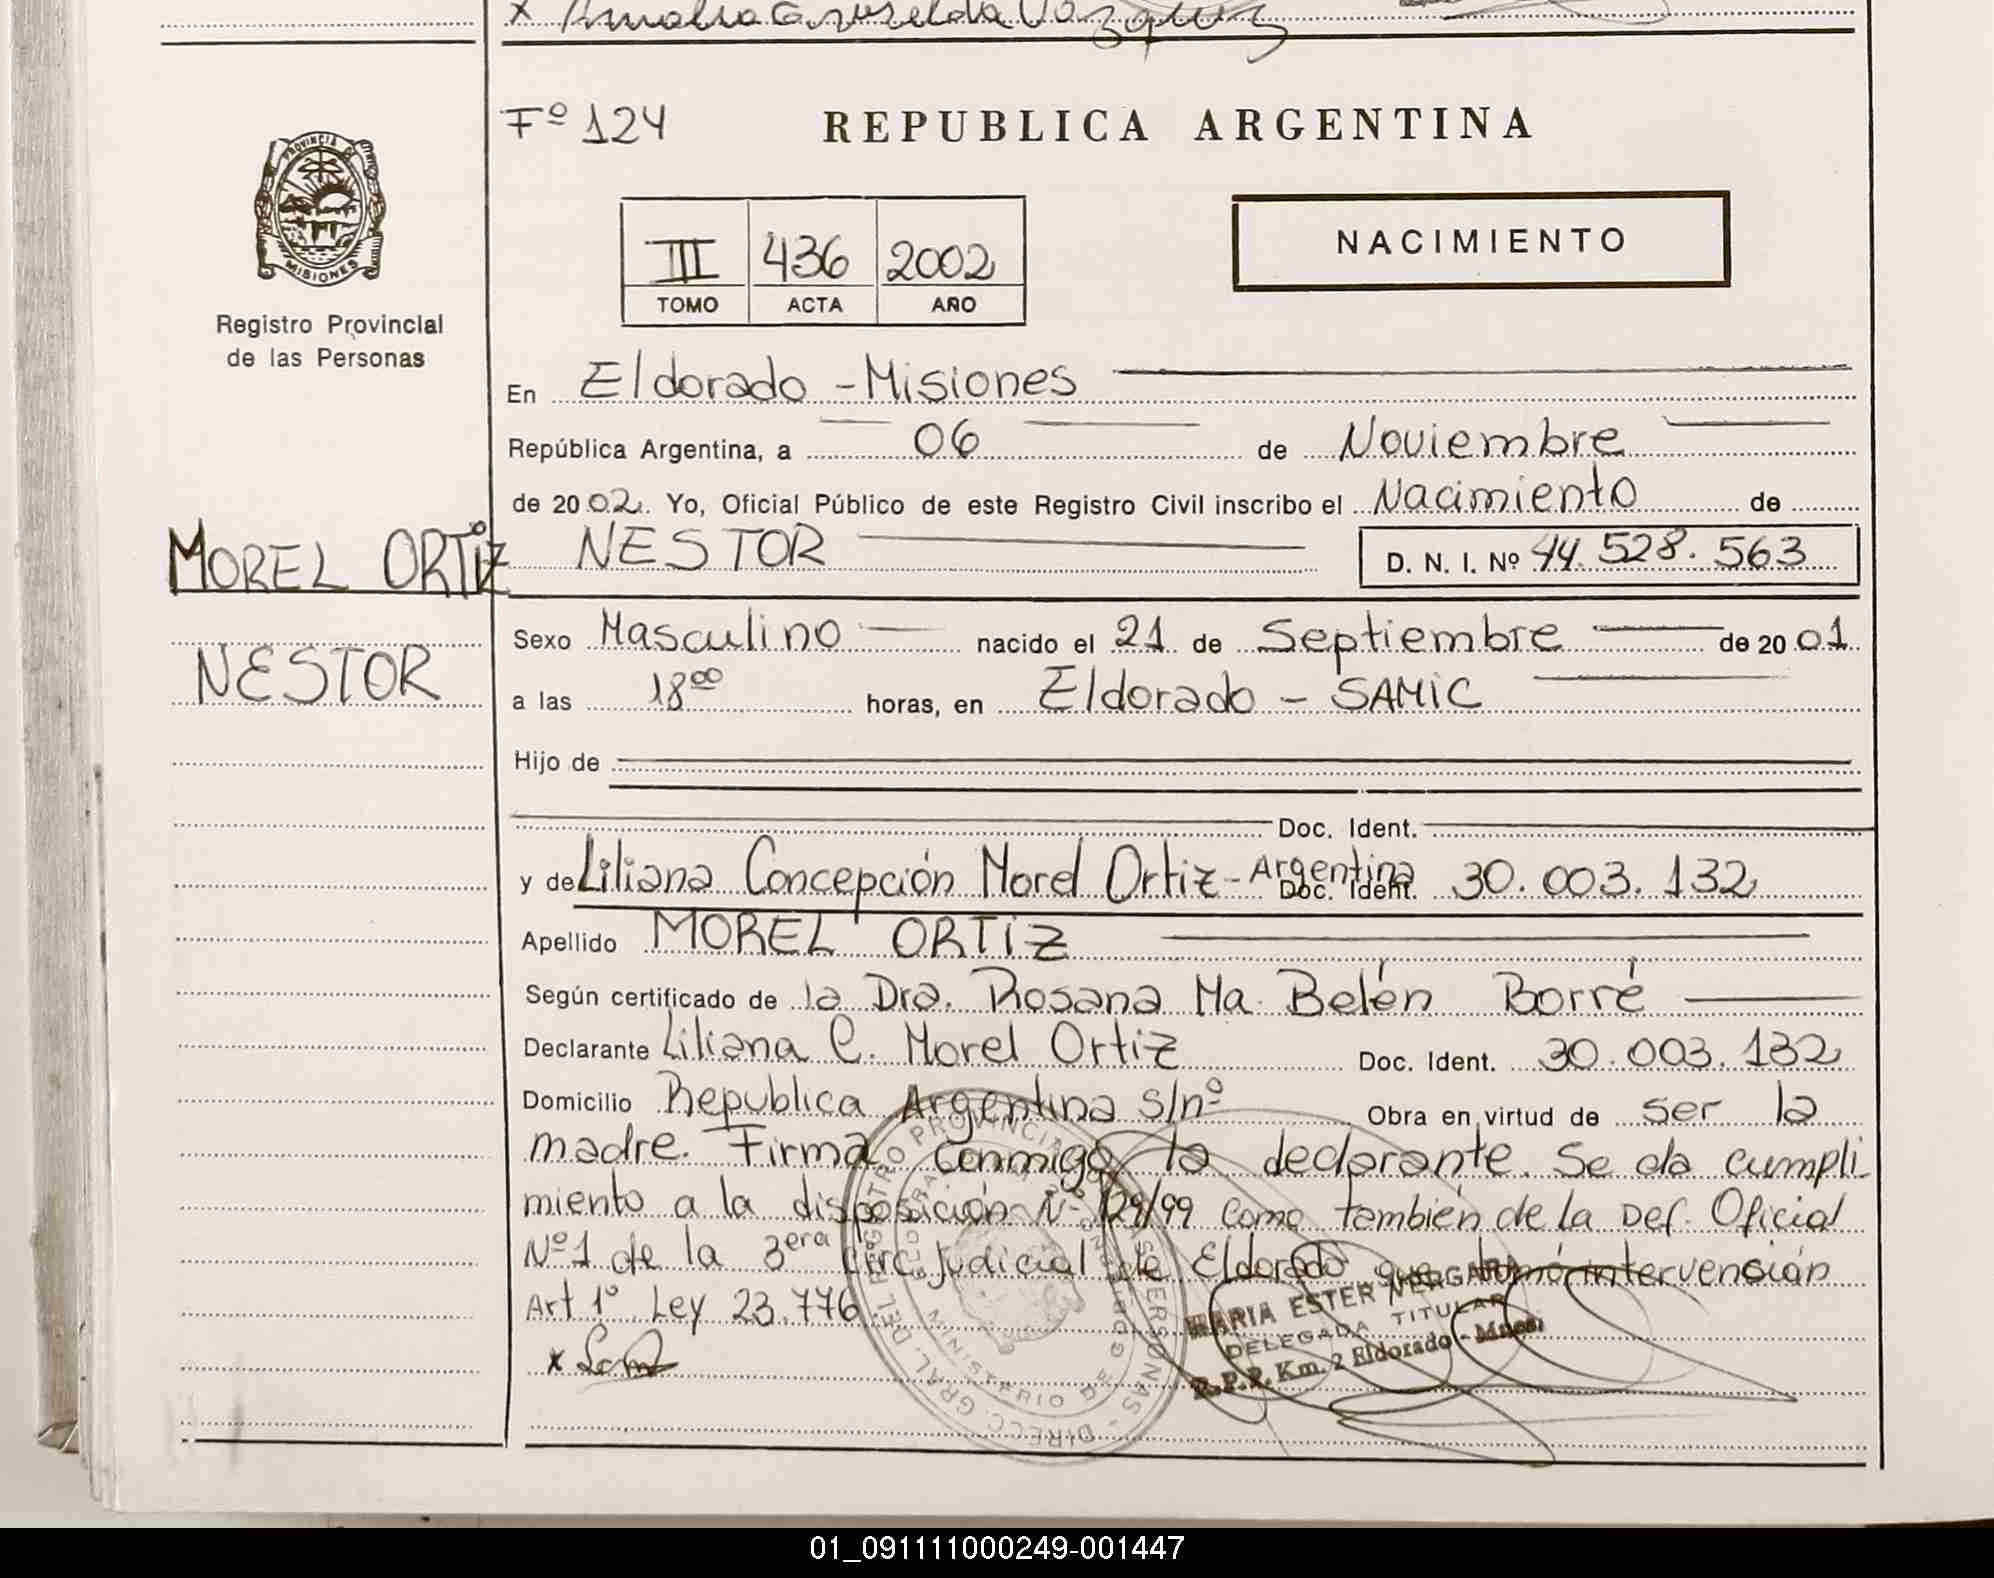 x Amalia Griselda Vázquez
PROVINCIA DE
MISIONES
Registro Provincial
de las Personas
Fº 124
REPUBLICA ARGENTINA
III 436 2002
TOMO ACTA AÑO
NACIMIENTO
En Eldorado - Misiones
República Argentina, a 06 de Noviembre
de 2002. Yo, Oficial Público de este Registro Civil inscribo el Nacimiento de
MOREL ORTIZ NESTOR D. N. I. Nº 44.528.563
NESTOR
Sexo Masculino nacido el 21 de Septiembre de 2001
a las 18⁰⁰ horas, en Eldorado - SAMIC
Hijo de
Doc. Ident.
y de Liliana Concepción Morel Ortiz - Argentina Doc. Ident. 30.003.132
Apellido MOREL ORTIZ
Según certificado de la Dra. Rosana Ma. Belén Borré
Declarante Liliana C. Morel Ortiz Doc. Ident. 30.003.132
Domicilio Republica Argentina s/nº Obra en virtud de ser la
madre. Firma conmigo la declarante. Se da cumpli
miento a la disposición Nº 129/99 como también de la Def. Oficial
Nº 1 de la 3era Circ Judicial de Eldorado que tomó intervención
Art 1º Ley 23.776
x
MARIA ESTER VERGARA
DELEGADA TITULAR
R.P.P. Km. 2 Eldorado - Mnes.
DIRECC. GRAL. DEL REGISTRO PROVINCIAL DE LAS PERSONAS
MINISTERIO DE
01_091111000249-001447